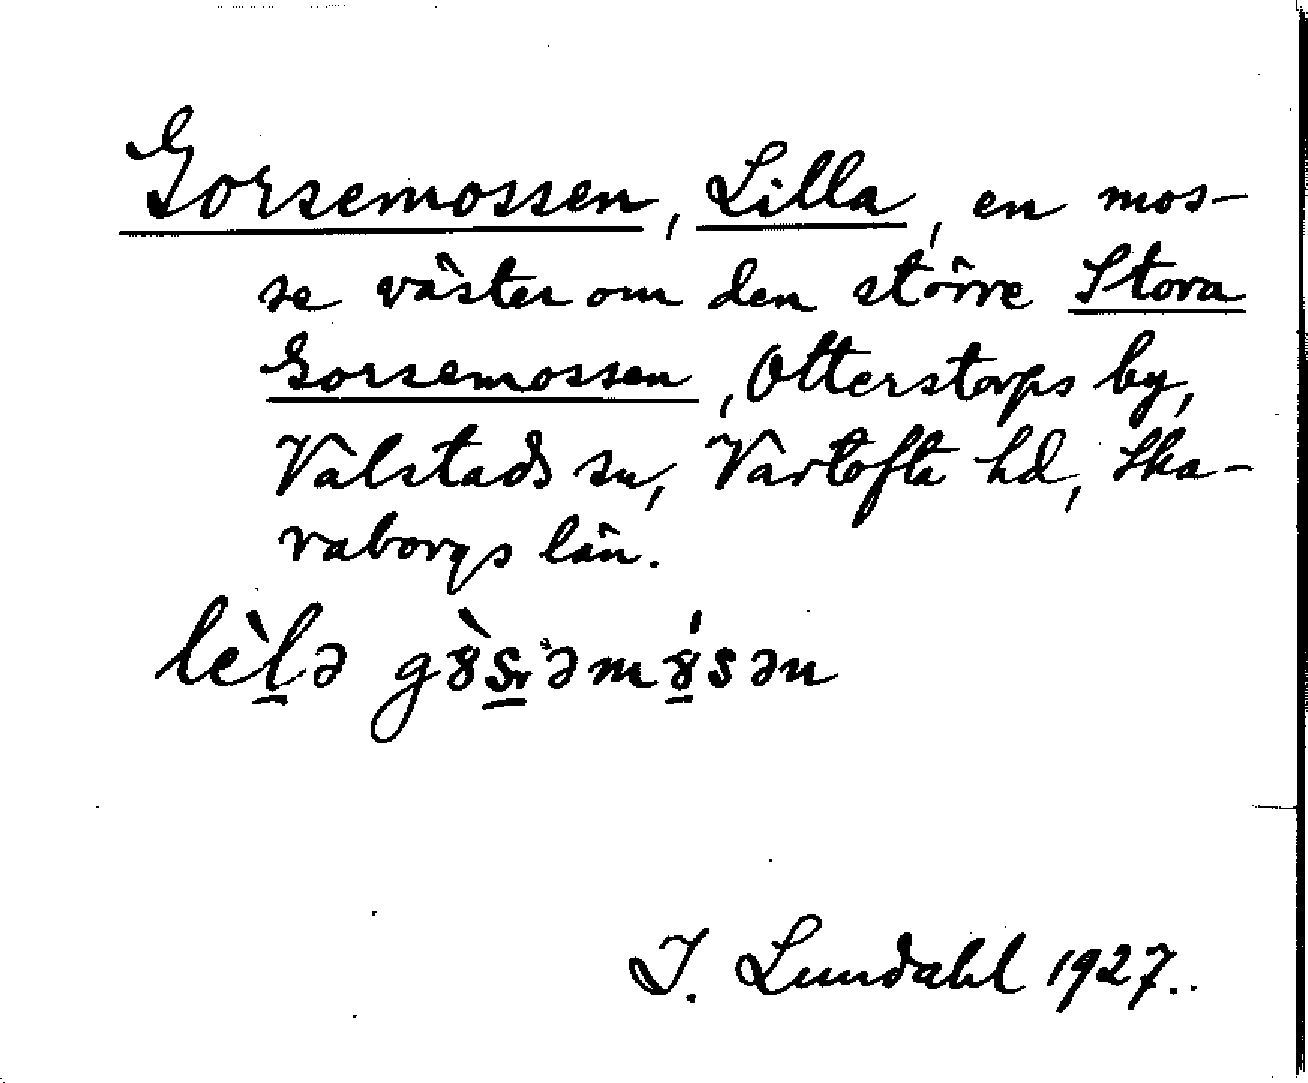 Gorsemossen, Lilla, en mos-
se väster om den större Stora
Gorsemossen, Otterstorps by,
Valstads sn, Vartofta hd, Ska-
raborgs län.
I. Lundahl 1927.